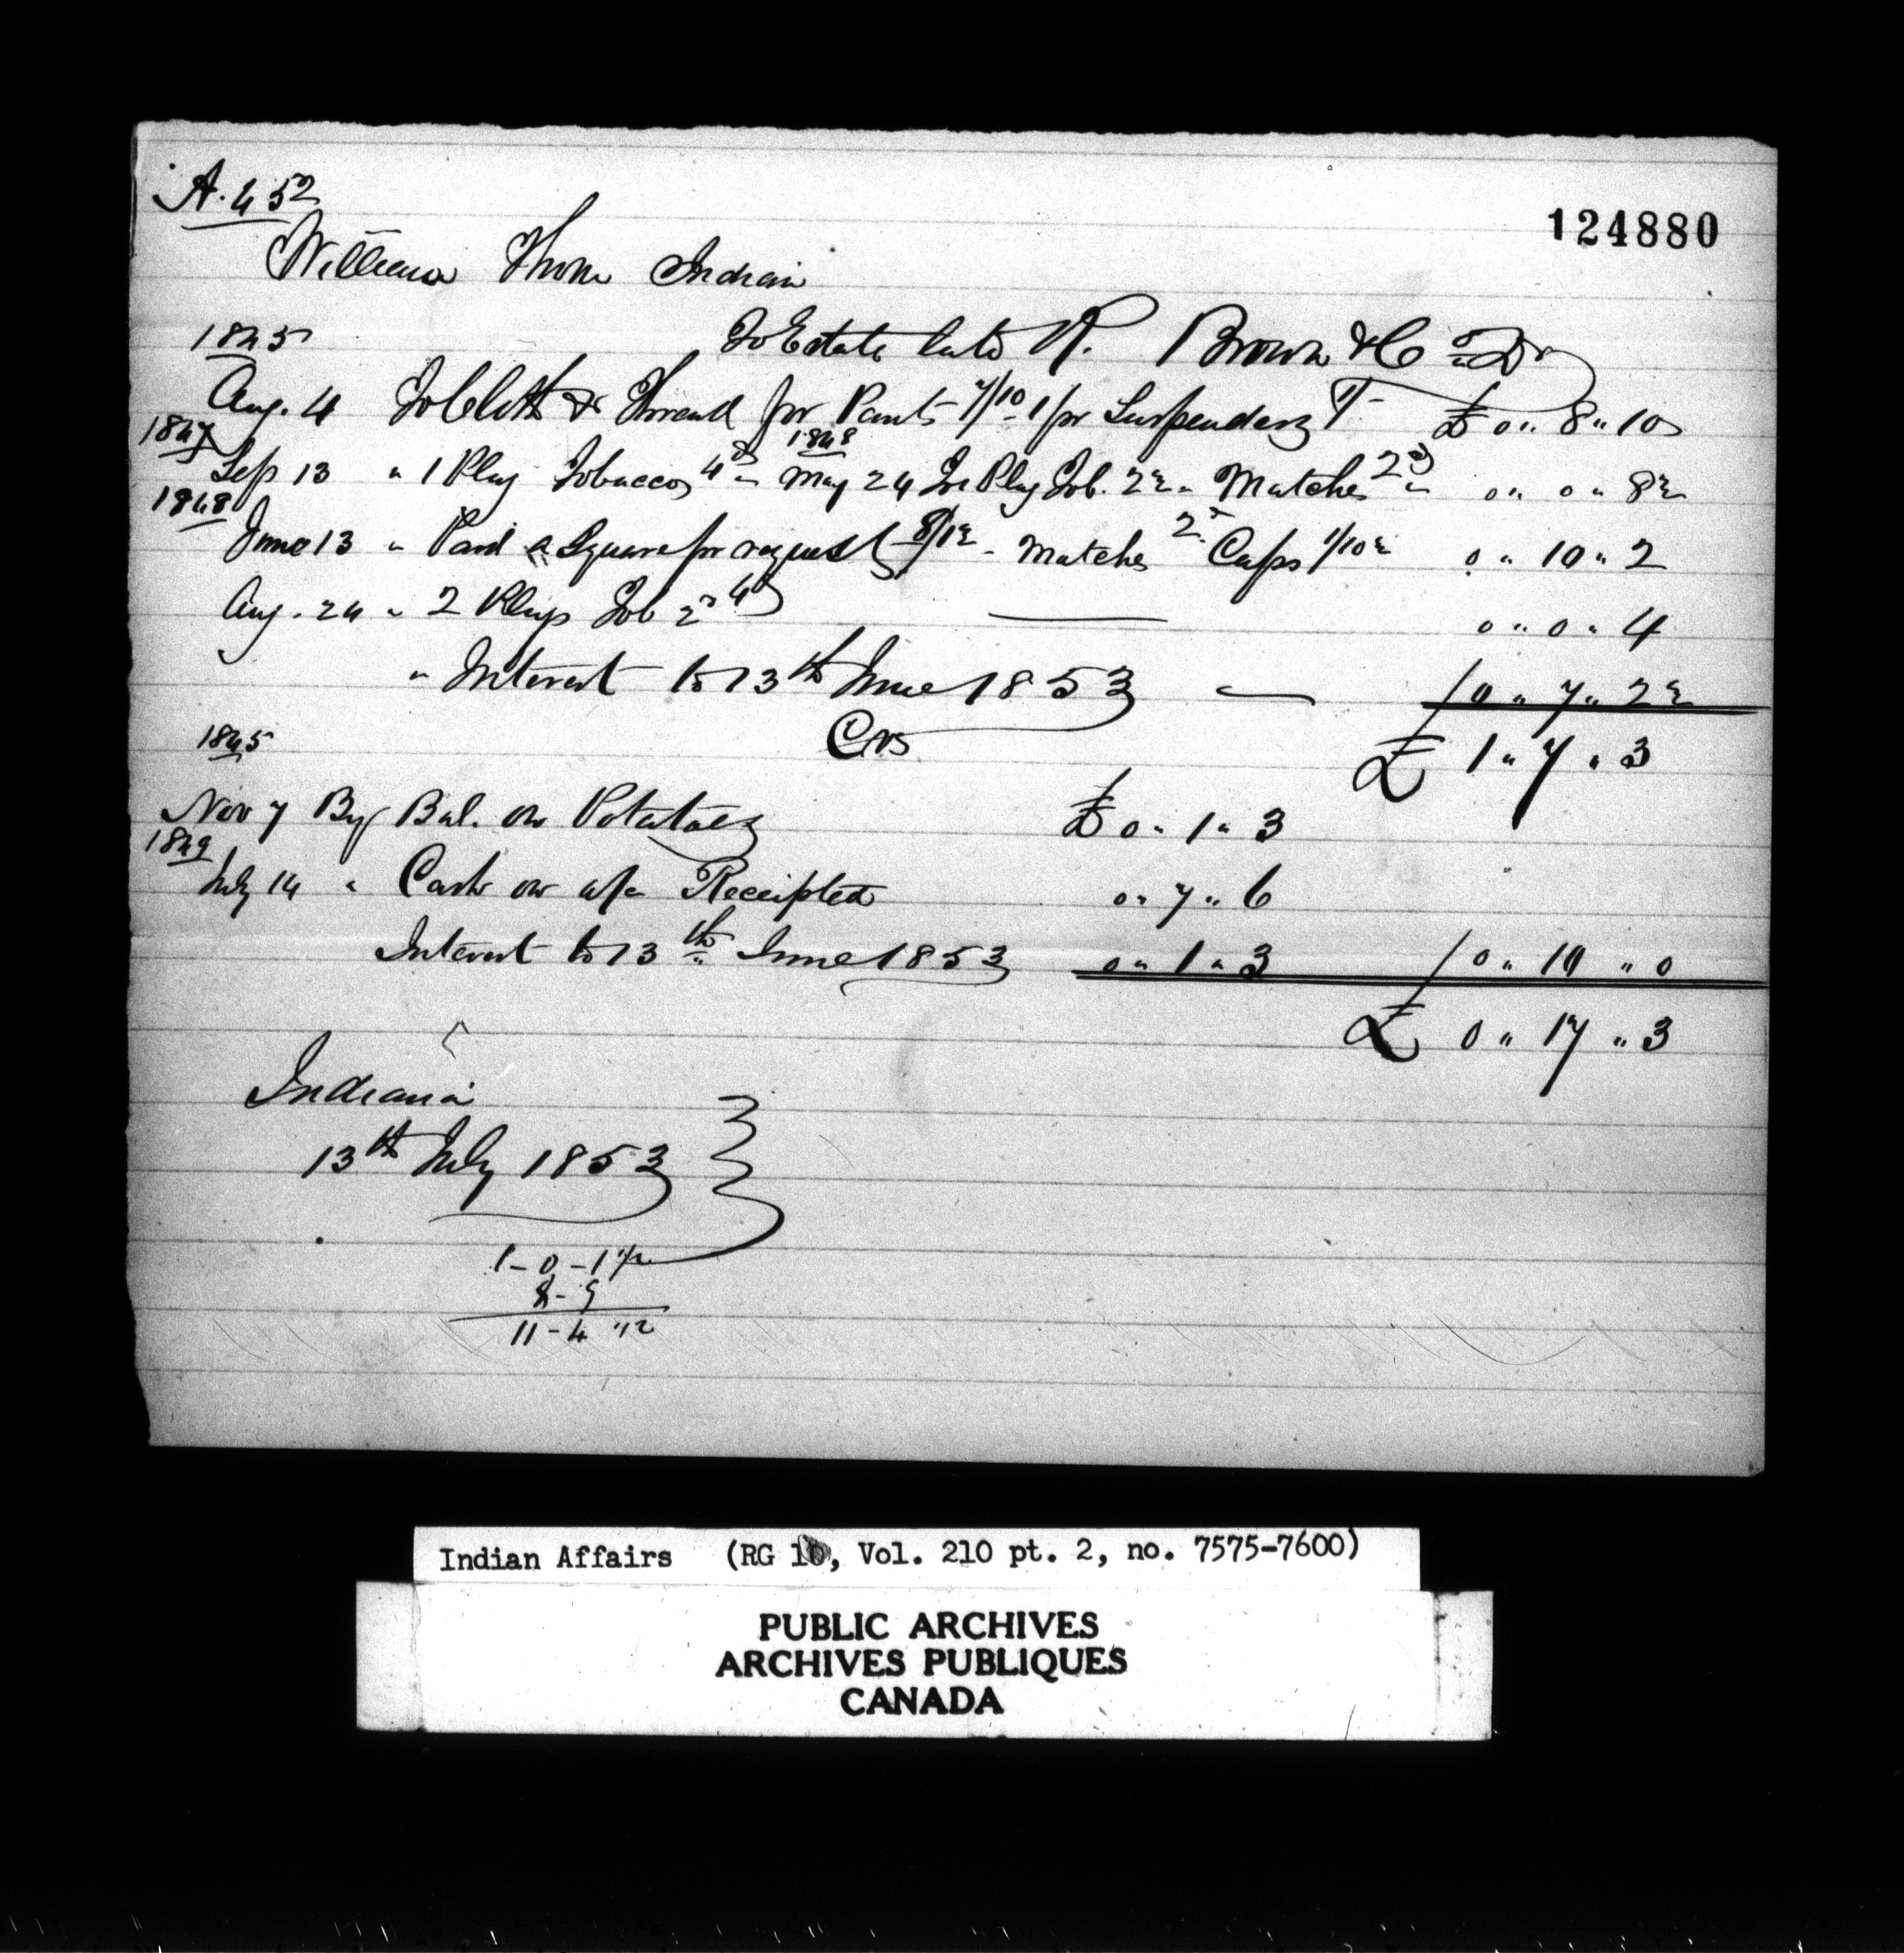 A. 452
124880
William Thom Indian
1845 To Estate late R. Brown & Co Dr
Aug. 4 To Cloth & Thread for Pants 7/10 1 pr Suspenders 1/- £ 0 " 8 " 10
1847 1848
Sep 13 " 1 Plug Tobacco 4d " May 24 To Plug Tob. 2½ " Matches 2d " 0 " 0 " 8½
1848
June 13 " Paid Square pr request 8/1½ - Matches 2d Caps 1/10½ 0 " 10 " 2
Aug. 24 " 2 Plugs Tob 2d 4d 0 " 0 " 4
" Interest to 13th June 1853 0 " 7 " 2½
1845 Crs £ 1 " 7 " 3
Nov 7 By Bal. on Potatoes £ 0 " 1 " 3
1849
July 14 " Cash on a/c Receipted 0 " 7 " 6
Interest to 13th June 1853 0 " 1 " 3 0 " 10 " 0
£ 0 " 17 " 3
Indiana
13th July 1853
1 - 0 - 1 1/2
8 - 9
11 - 4 1/2
Indian Affairs (RG 10, Vol. 210 pt. 2, no. 7575-7600)
PUBLIC ARCHIVES
ARCHIVES PUBLIQUES
CANADA